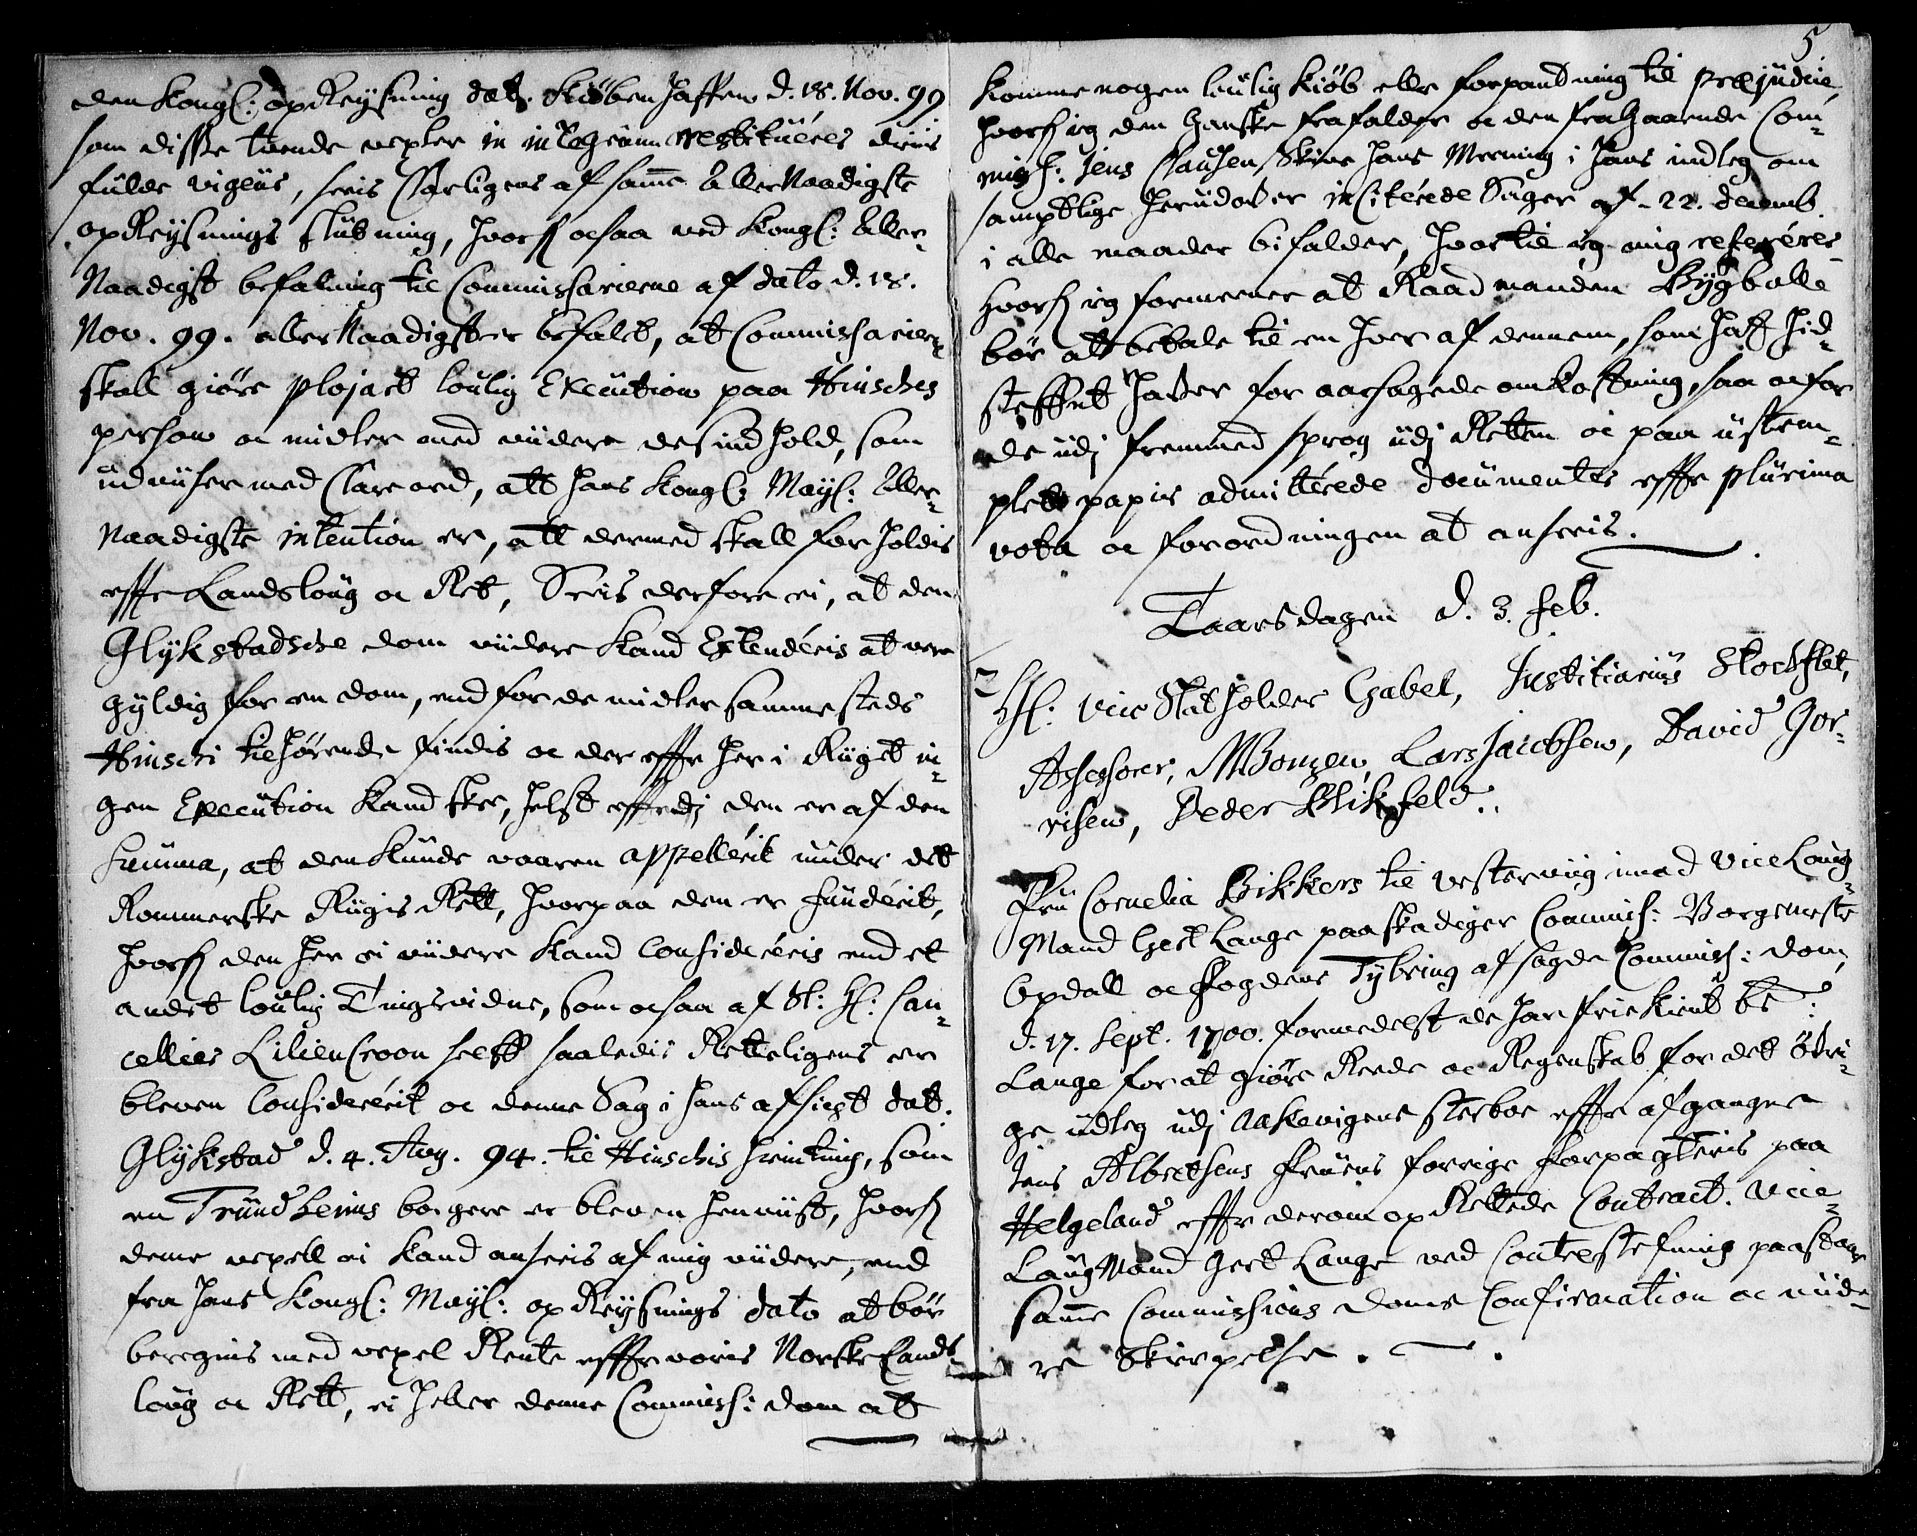 den Kongl: opReysning dat. Kiøbenhaffen d. 18. Nov. 99
som disse tvende vexler in integrum restituéres deris
fulde vigeur, seeis Klarligens af samme AllerNaadigste
opReysnings slutning, hvorfor ocsaa ved Kongl: Aller-
Naadigst befaling til Commissarierne af dato d. 18.
Nov. 99. allerNaadigst er befalet, at Commissarier-
skall giøre ployact loulig Execution paa Hinsches
person oc midler med viidere des indhold, som
udviiser med Clare ord, att hans Kongl: Mayt: Aller-
naadigste intention er, att dermed skall forholdis
effter Landsloug oc Ret, Seeis derfore ei, at den
Glykstadsche dom viidere kand Extendéris at vere
gyldig for en dom, end for de midler sammesteds
Hinschi tilhørende findis oc der effter her i Riiget in-
gen Execution kand skee, helst efftedj den er af den
Summa, at den kunde vaaren appellérit under det
Rommerske Riigis Rett, hvorpaa den er fundérit,
hvorfor den her ei viidere kand Consideréris end et
andet louligt Tingsvidne, som ocsaa af Sl: H: Can-
cellier Liliencroon self saaledis Retteligens er
bleven Considererit oc denne Sag i hans afsigt dat.
Glykstad d. 4. Aug. 94. til Hinschis hiemting, som
en Trundheims borgere er bleven henviist, hvorfor
denne vexell ei kand anseeis af mig viidere, end
fra hans Kongl: Mayt: opReysnings dato at bør
beregnis med vexel Rente effter voris Norske Lands
loug oc Rett, ei heller denne Commiss: dom at
5
komme nogen loulig kiøb eller forpandtning til præjudice,
hvorfor ieg den ganske frafalder oc den fragaaende Com-
miss: Jens Clausen Skive hans Meening i hans indleg om
samptlige herudover inCiterede Sager af 22. decemb.
i alle maader bifalder, hvortil ieg mig referérer
hvorfor ieg formeener at Raadmanden Bygballe
bør att betale til en hver af dennem, som haffr hid-
steffnt haver for aarsagede omkostning, saa oc for
de udj fremmed sprog udj Retten oc paa ustem-
plet papir admitterede documenter effter plurima
vota oc forordningen at anseeis.
Taarsdagen d. 3. Feb.
2
H: Vice Statholder Gabel, Justitiarius Stockflet,
Assessorer, Monsen, Lars Jacobsen, David Jør-
risen, Peder Blikfeld.
Fru Cornelia Bikkers til vesterviig imod Vice Laug-
Mand Gert Lange paaskadiger Commiss: Borgemester
Opdall oc Fogdens Tybring afsagde Commiss: dom
d. 17. Sept. 1700. formedelst de har friekient bte:
Lange for at giøre Reede oc Regenskab for det ødri-
ge udleg udj Aakevigens sterboe effter afgangne
Jens Albretsens Fruens forrige Forpagteris paa
Helgeland effter derom opRettede Contract. Vice-
LaugMand Gert Lange ved Contrastefning paastaar
samme Commissions doms Confirmation oc viide-
re Skierpelse.